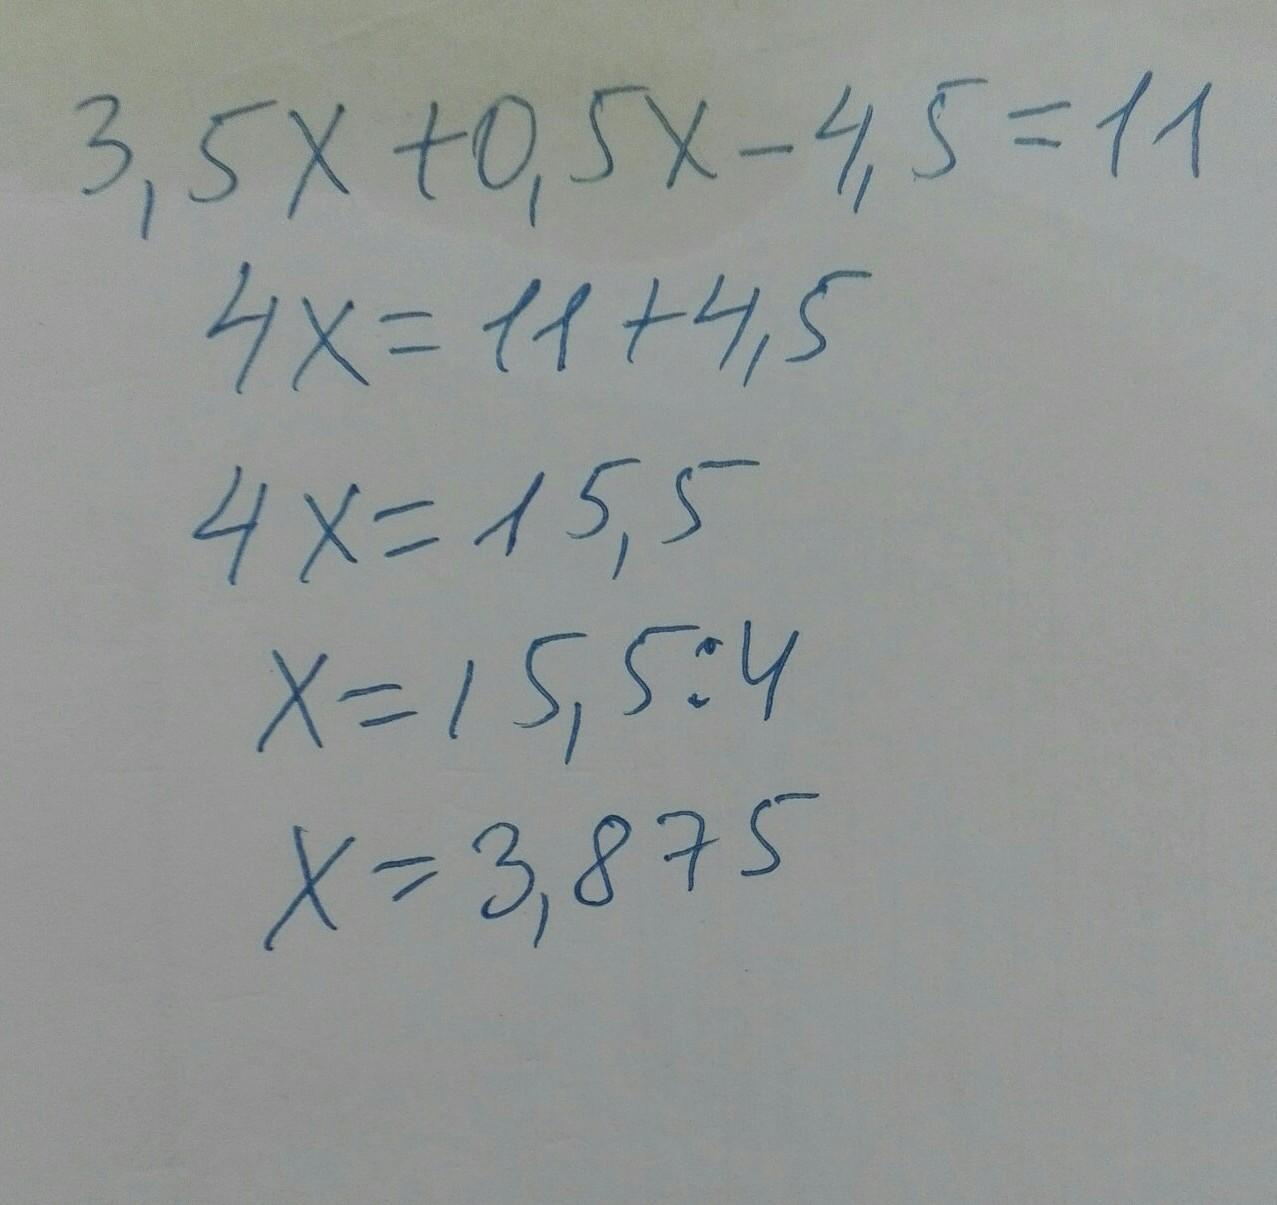 3,5x+0,5x-4,5=11
4x=11+4,5
4x=15,5
x=15,5:4
x=3,875